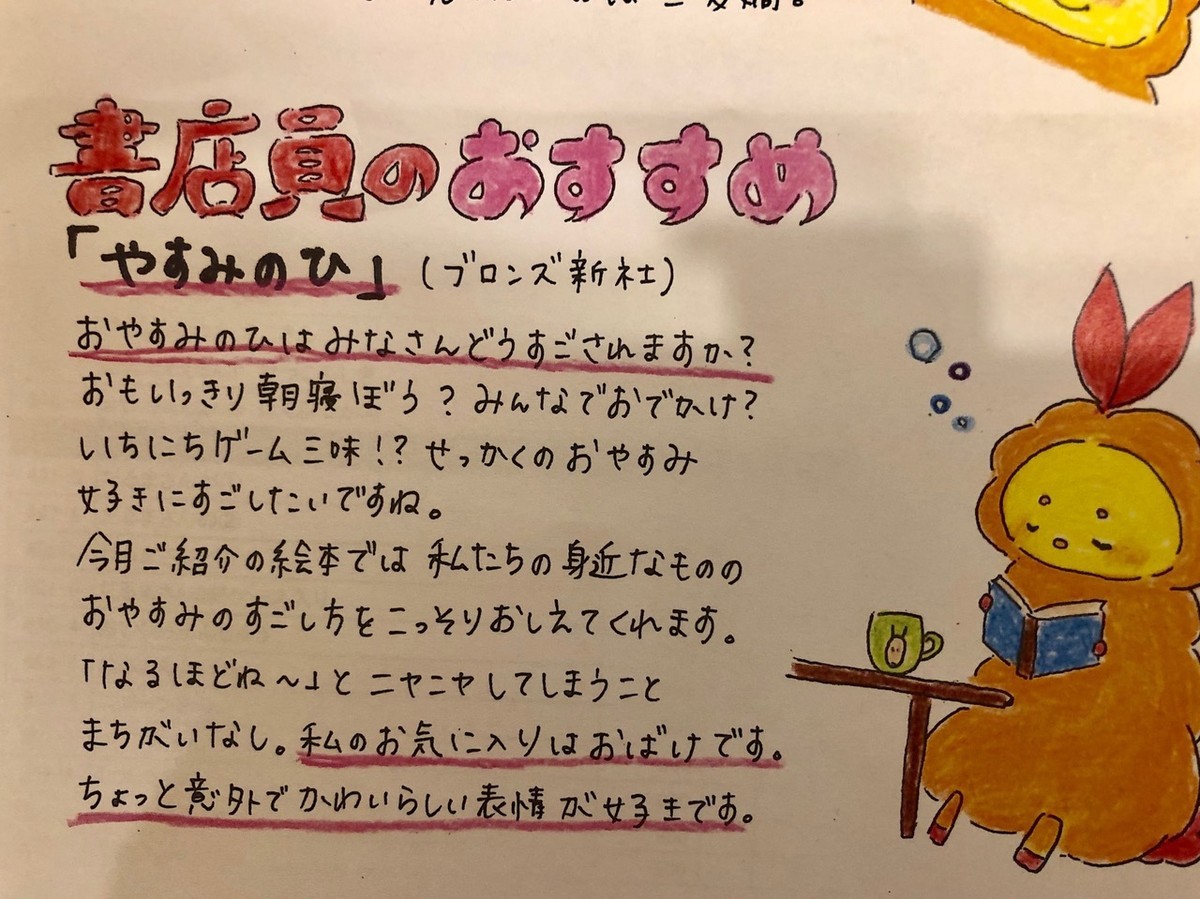 書店員のおすすめ
「やすみのひ」(ブロンズ新社)
おやすみのひはみなさんどうすごされますか?
おもいっきり朝寝ぼう?みんなでおでかけ?
いちにちゲーム三味!?せっかくのおやすみ
好きにすごしたいですね。
今月ご紹介の絵本では私たちの身近なものの
おやすみのすごし方をこっそりおしえてくれます。
「なるほどね~」とニヤニヤしてしまうこと
まちがいなし。私のお気に入りはおばけです。
ちょっと意外でかわいらしい表情が好きです。